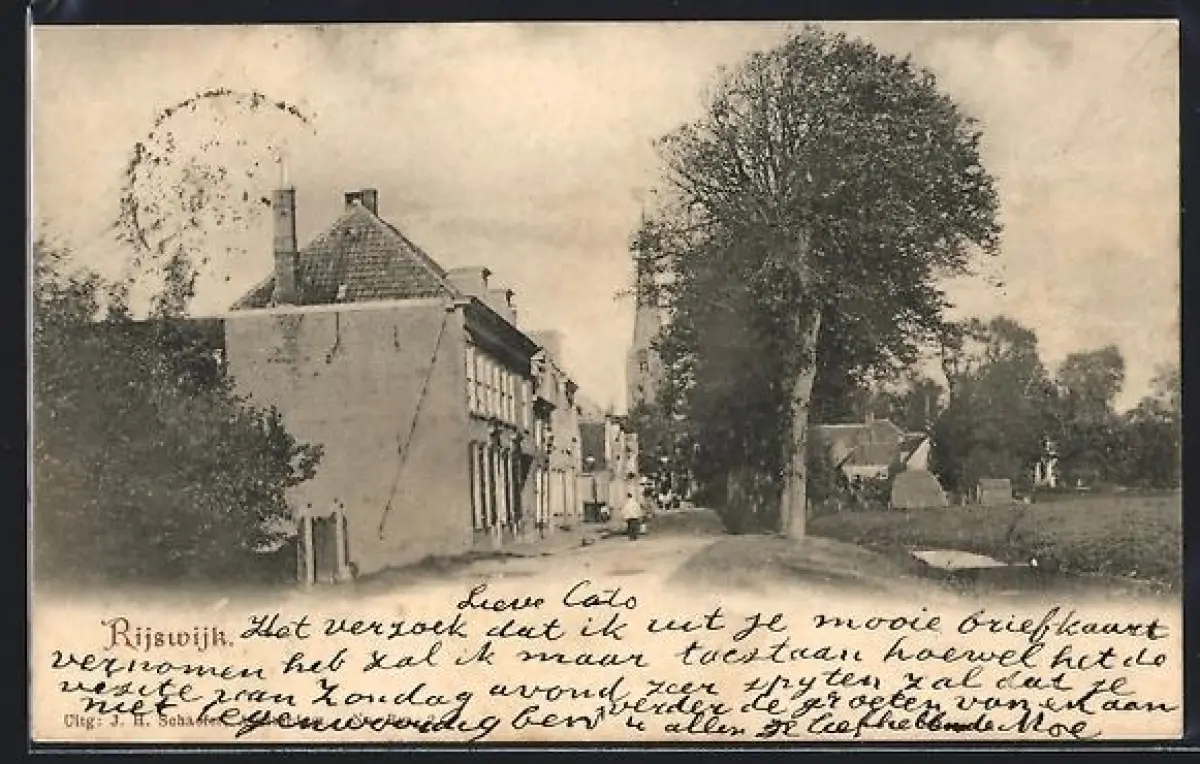 Lieve Cato
Rijswijk. Het verzoek dat ik uit je mooie briefkaart
vernomen heb zal ik maar toestaan hoewel het de
vesite van Zondag avond zeer spyten zal dat je
niet tegenwoordig ben verder de groeten van en aan
Uitg: J. H. Schaefer, u allen je liefhebbende Moe